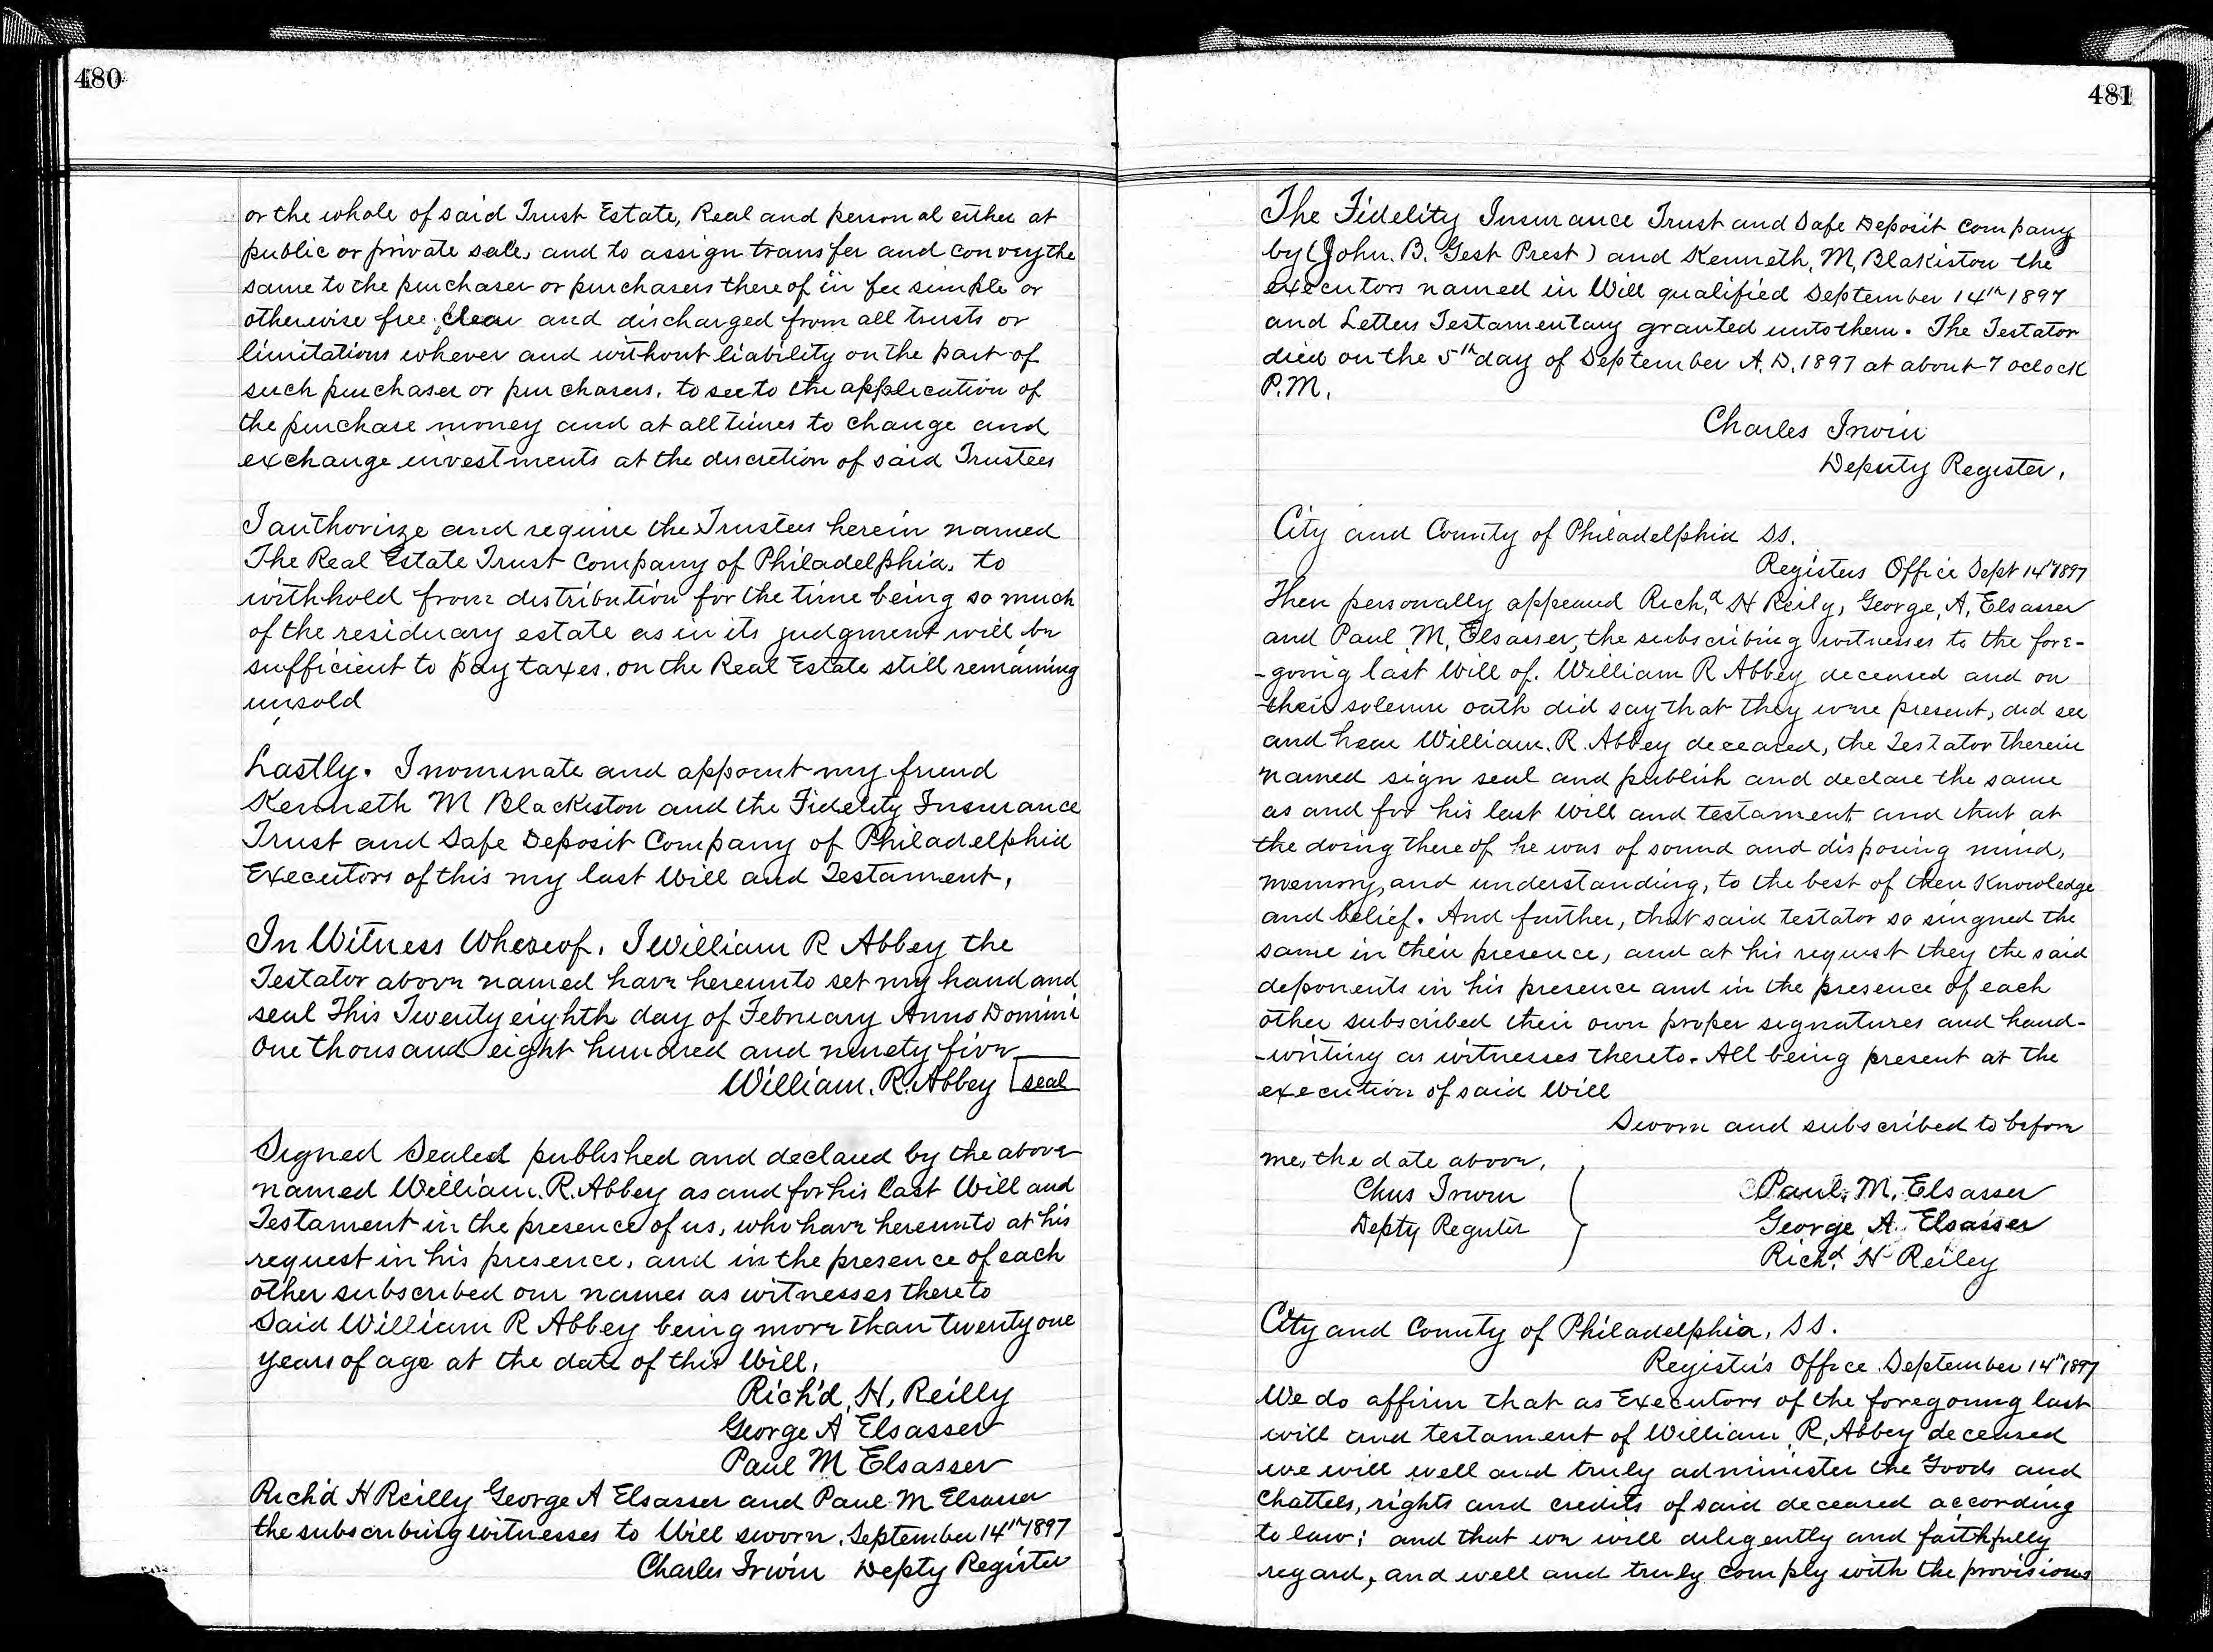 480
or the whole of said Trust Estate, Real and personal either at
public or private sale, and to assign transfer and convey the
same to the purchaser or purchasers thereof in fee simple or
otherwise free, clear and discharged from all trusts or
limitations whever and without liability on the part of
such purchaser or purchasers, to see to the application of
the purchase money and at all times to change and
exchange investments at the discretion of said Trustees
I authorize and require the Trustees herein named
The Real Estate Trust Company of Philadelphia, to
withhold from distribution for the time being so much
of the residuary estate as in its judgment will be
sufficient to pay taxes, on the Real Estate still remaining
unsold
Lastly. I nominate and appoint my friend
Kenneth M Blackiston and the Fidelity Insurance
Trust and Safe Deposit Company of Philadelphia
Executors of this my last Will and Testament,
In Witness Whereof, I William R Abbey the
Testator above named have hereunto set my hand and
seal This Twenty eighth day of February Anno Domini
One thousand eight hundred and ninety five
William. R. Abbey seal
Signed Sealed published and declared by the above
named William. R. Abbey as and for his Last Will and
Testament in the presence of us, who have hereunto at his
request in his presence, and in the presence of each
other subscribed our names as witnesses thereto
Said William R Abbey being more than twenty one
years of age at the date of this Will,
Rich'd, H, Reilly
George A Elsasser
Paul M Elsasser
Rich'd H Reilly George A Elsasser and Paul M Elsasser
the subscribing witnesses to Will sworn, September 14th 1897
Charles Irwin Depty Register
481
The Fidelity Insurance Trust and Safe Deposit Company
by (John. B. Gest Prest) and Kenneth, M, Blakiston the
executors named in Will qualified September 14th 1897
and Letters Testamentary granted unto them. The Testator
died on the 5th day of September A. D. 1897 at about 7 oclock
P.M.
Charles Irwin
Deputy Register,
City and County of Philadelphia SS.
Registers Office Sept 14th 1897
Then personally appeared Rich,d H Reily, George, A, Elsasser
and Paul M, Elsasser, the subscribing witnesses to the fore-
-going last Will of. William R Abbey deceased and on
their solemn oath did say that they were present, did see
and hear William. R. Abbey deceased, the Testator therein
named sign seal and publish and declare the same
as and for his last Will and testament and that at
the doing thereof he was of sound and disposing mind,
memory, and understanding, to the best of their Knowledge
and belief. And further, that said testator so singned the
same in their presence, and at his request they the said
deponents in his presence and in the presence of each
other subscribed their own proper signatures and hand-
-writing as witnesses thereto. All being present at the
execution of said Will
Sworn and subscribed to before
me, the date above,
Chas Irwin
Depty Register
Paul, M, Elsasser
George A. Elsasser
Richd. H Reiley
City and County of Philadelphia, SS.
Register's Office September 14th 1897
We do affirm that as Executors of the foregoing last
will and testament of William, R, Abbey deceased
we will well and truly administer the Goods and
Chattels, rights and credits of said deceased according
to law; and that we will diligently and faithfully
regard, and well and truly comply with the provisions